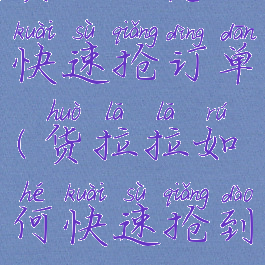 kuài sù qiǎng dìng dān
快速抢订单
huò lā lā rú
(货拉拉如
hé kuài sù qiǎng dào
何快速抢到